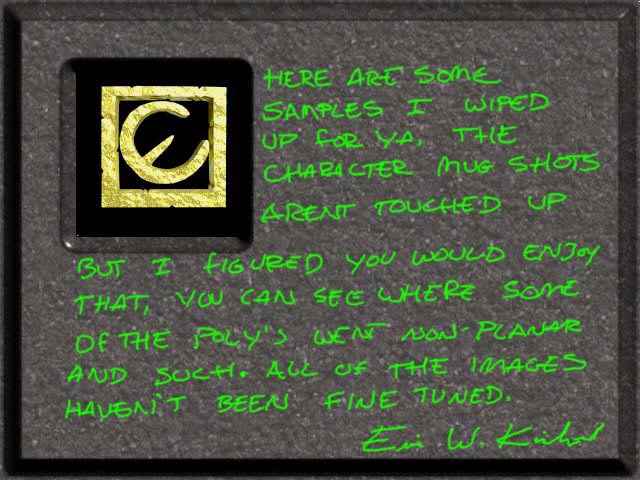 HERE ARE SOME
SAMPLES I WIPED
UP FOR YA. THE
CHARACTER MUG SHOTS
ARENT TOUCHED UP
BUT I FIGURED YOU WOULD ENJOY
THAT, YOU CAN SEE WHERE SOME
OF THE POLY'S WENT NON-PLANAR
AND SUCH. ALL OF THE IMAGES
HAVEN'T BEEN FINE TUNED.
W.